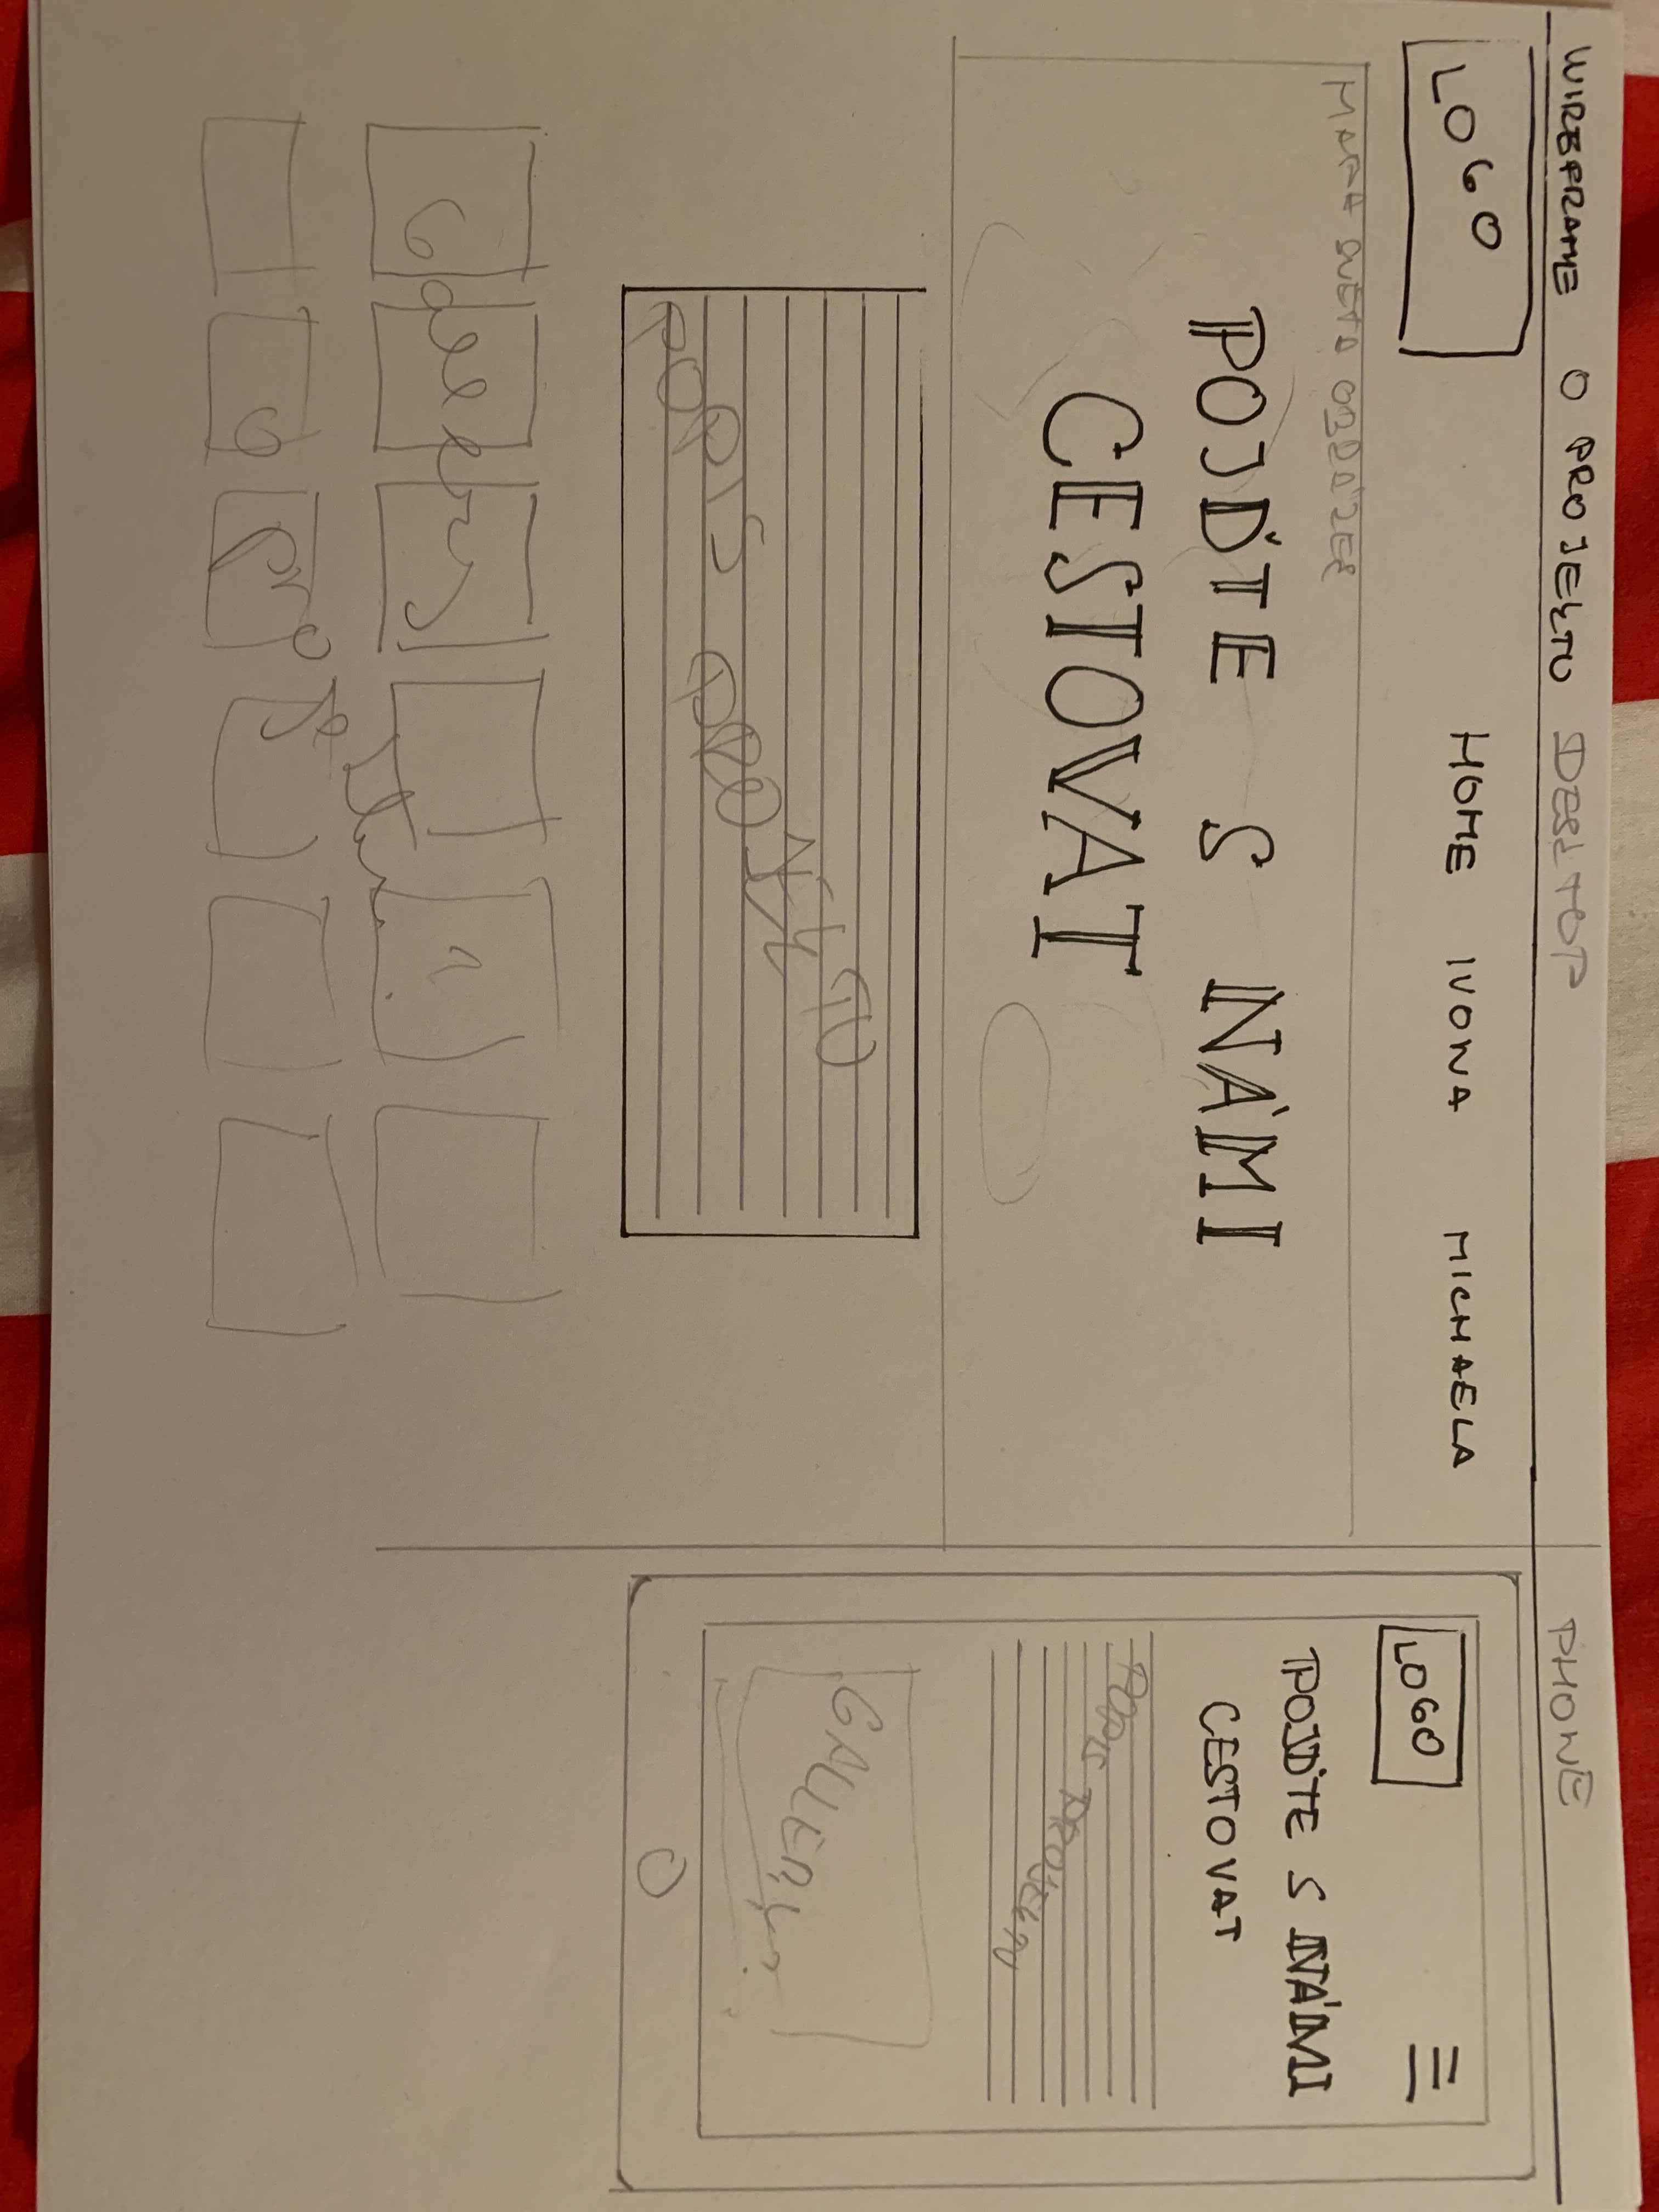 WIREFRAME O PROJEKTU DESKTOP
LOGO
HOME IVONA MICHAELA
MAPA SVĚTA OBRÁZEK
POJĎTE S NÁMI
CESTOVAT
POPIS PROJEKTU
Gallery
PHONE
LOGO
POJĎTE S NÁMI
CESTOVAT
POPIS PROJEKTU
GALLERY